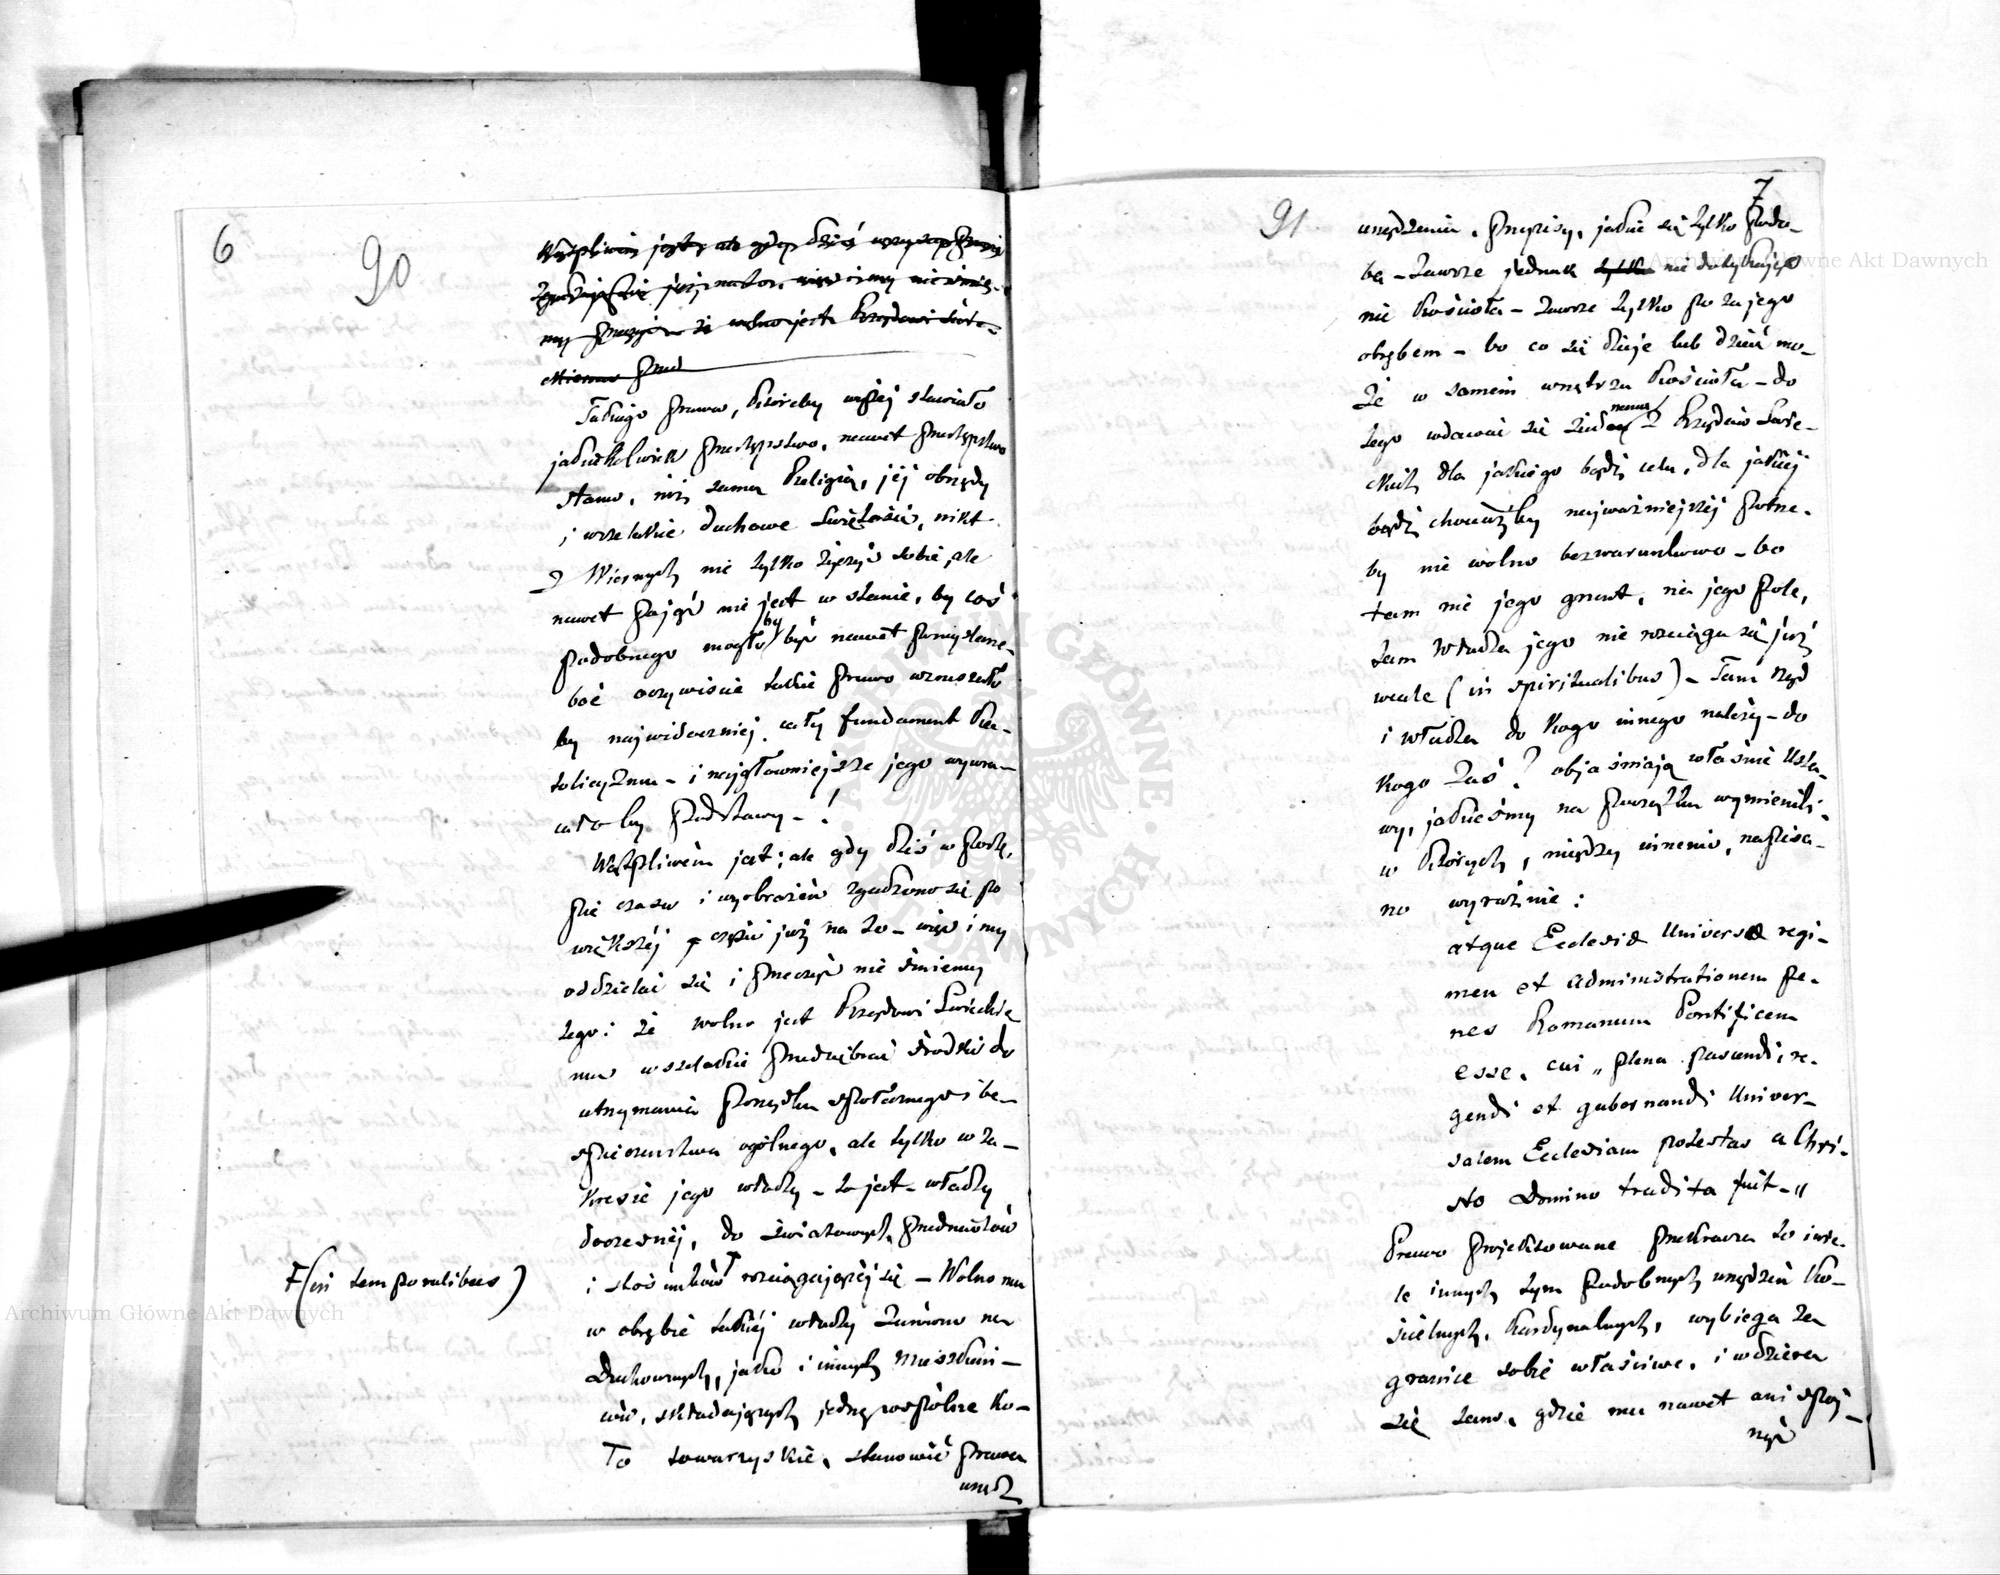 6
90
Wątpliwem jest, ale gdy dziś
my przeczyć że wolno jest Rządowi Świe-
ckiemu
Takiego prawa, któreby wyżej stawiało
jakiekolwiek przestępstwo, nawet przestępstwo
stanu, niż sama Religia, jej obrzędy
i wszelakie duchowe świętości, nikt
z Wiernych nie tylko życzyć sobie, ale
nawet pojąć nie jest w stanie, by coś
podobnego mogłoby być nawet pomyślane-
boć oczywiście takie prawo wzruszało
by najwidoczniej cały fundament Ka-
tolicyzmu - i najgłówniejsze jego wywra-
cało by podstawy - !
Wątpliwem jest; ale gdy dziś w postę-
pie czasu i wyobrażeń zgadzono się po
większéj części już na to - więc i my
oddzielać się i przeczyć nie śmiemy
tego: że wolno jest Rządowi Świeckie
mu wszelakie przedsiębrać środki do
utrzymania porządku społecznego i be-
spieczeństwa ogólnego, ale tylko w za-
kresie jego władzy - to jest - władzy
doczesnéj, do światowych przedmiotów
i stosunków F rozciągającéj się - Wolno mu
F (in temporalibus)
w obrębie takiéj władzy zarówno na
Duchownych, jako i innych mieszkań-
ców, składających jedno wspólne ko-
ło towarzyskie, stanowić prawa
urzą
7
91
urządzenia, przepisy, jakie się tylko podo-
ba - zawsze jednak tylko nie dotykające
nie Kościoła - zawsze tylko po za jego
obrębem - bo co się dzieje lub dziać mo-
że w samem wnętrzu Kościoła - do
tego wdawać się żadnemu z Rządów Świe-
ckich dla jakiego bądź celu, dla jakiéj
bądź chociażby najważniejszéj potrze-
by nie wolno bezwarunkowo - bo
tam nie jego grunt, nie jego pole,
tam władza jego nie rozciąga się już
wcale (in spiritualibus) - Tam rząd
i władza do kogo innego należy - do
kogo zaś? objaśniają właśnie Usta-
wy, jakieśmy na początku wymienili,
w których, między innemi, napisa-
no wyraźnie:
atque Ecclesiæ Universæ regi-
men et administrationem pe-
nes Romanum Pontificem
esse, cui „ plena pascendi, re-
gendi et gubernandi Univer-
salem Ecclesiam potestas a Chri-
sto Domino tradita fuit - „
Prawo projektowane przekracza to i wie-
le innych tym podobnych urządzeń Ko-
ścielnych, kardynalnych, wybiega za
granice sobie właściwe, i wdziera
się tam, gdzie mu nawet ani spoj-
rzeć
Archiwum Główne Akt Dawnych
Archiwum Główne Akt Dawnych
ARCHIWUM GŁÓWNE · AKT DAWNYCH ·